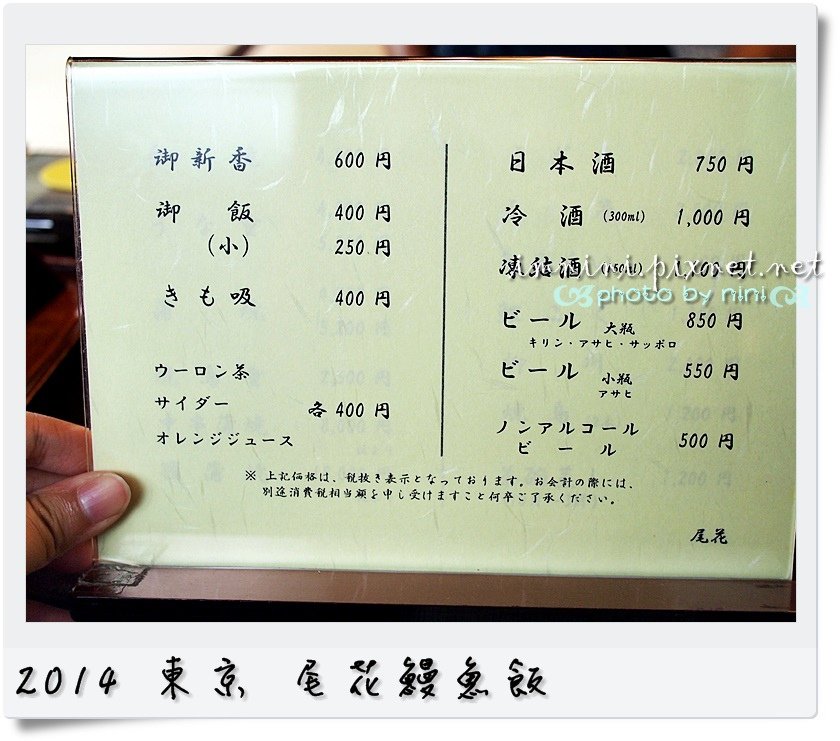 御新香 600 円
御 飯 400 円
(小) 250 円
きも吸 400 円
ウーロン茶
サイダー
オレンジジュース
各 400 円
日本酒 750 円
冷 酒 (300ml) 1,000 円
凍結酒 円
ビール 大瓶 850 円
キリン・アサヒ・サッポロ
ビール 小瓶 550 円
アサヒ
ノンアルコール
ビール 500 円
※ 上記価格は、税抜き表示となっております。お会計の際には、
別途消費税相当額を申し受けますこと何卒ご了承ください。
尾花
photo by nini
2014 東京 尾花鰻魚飯